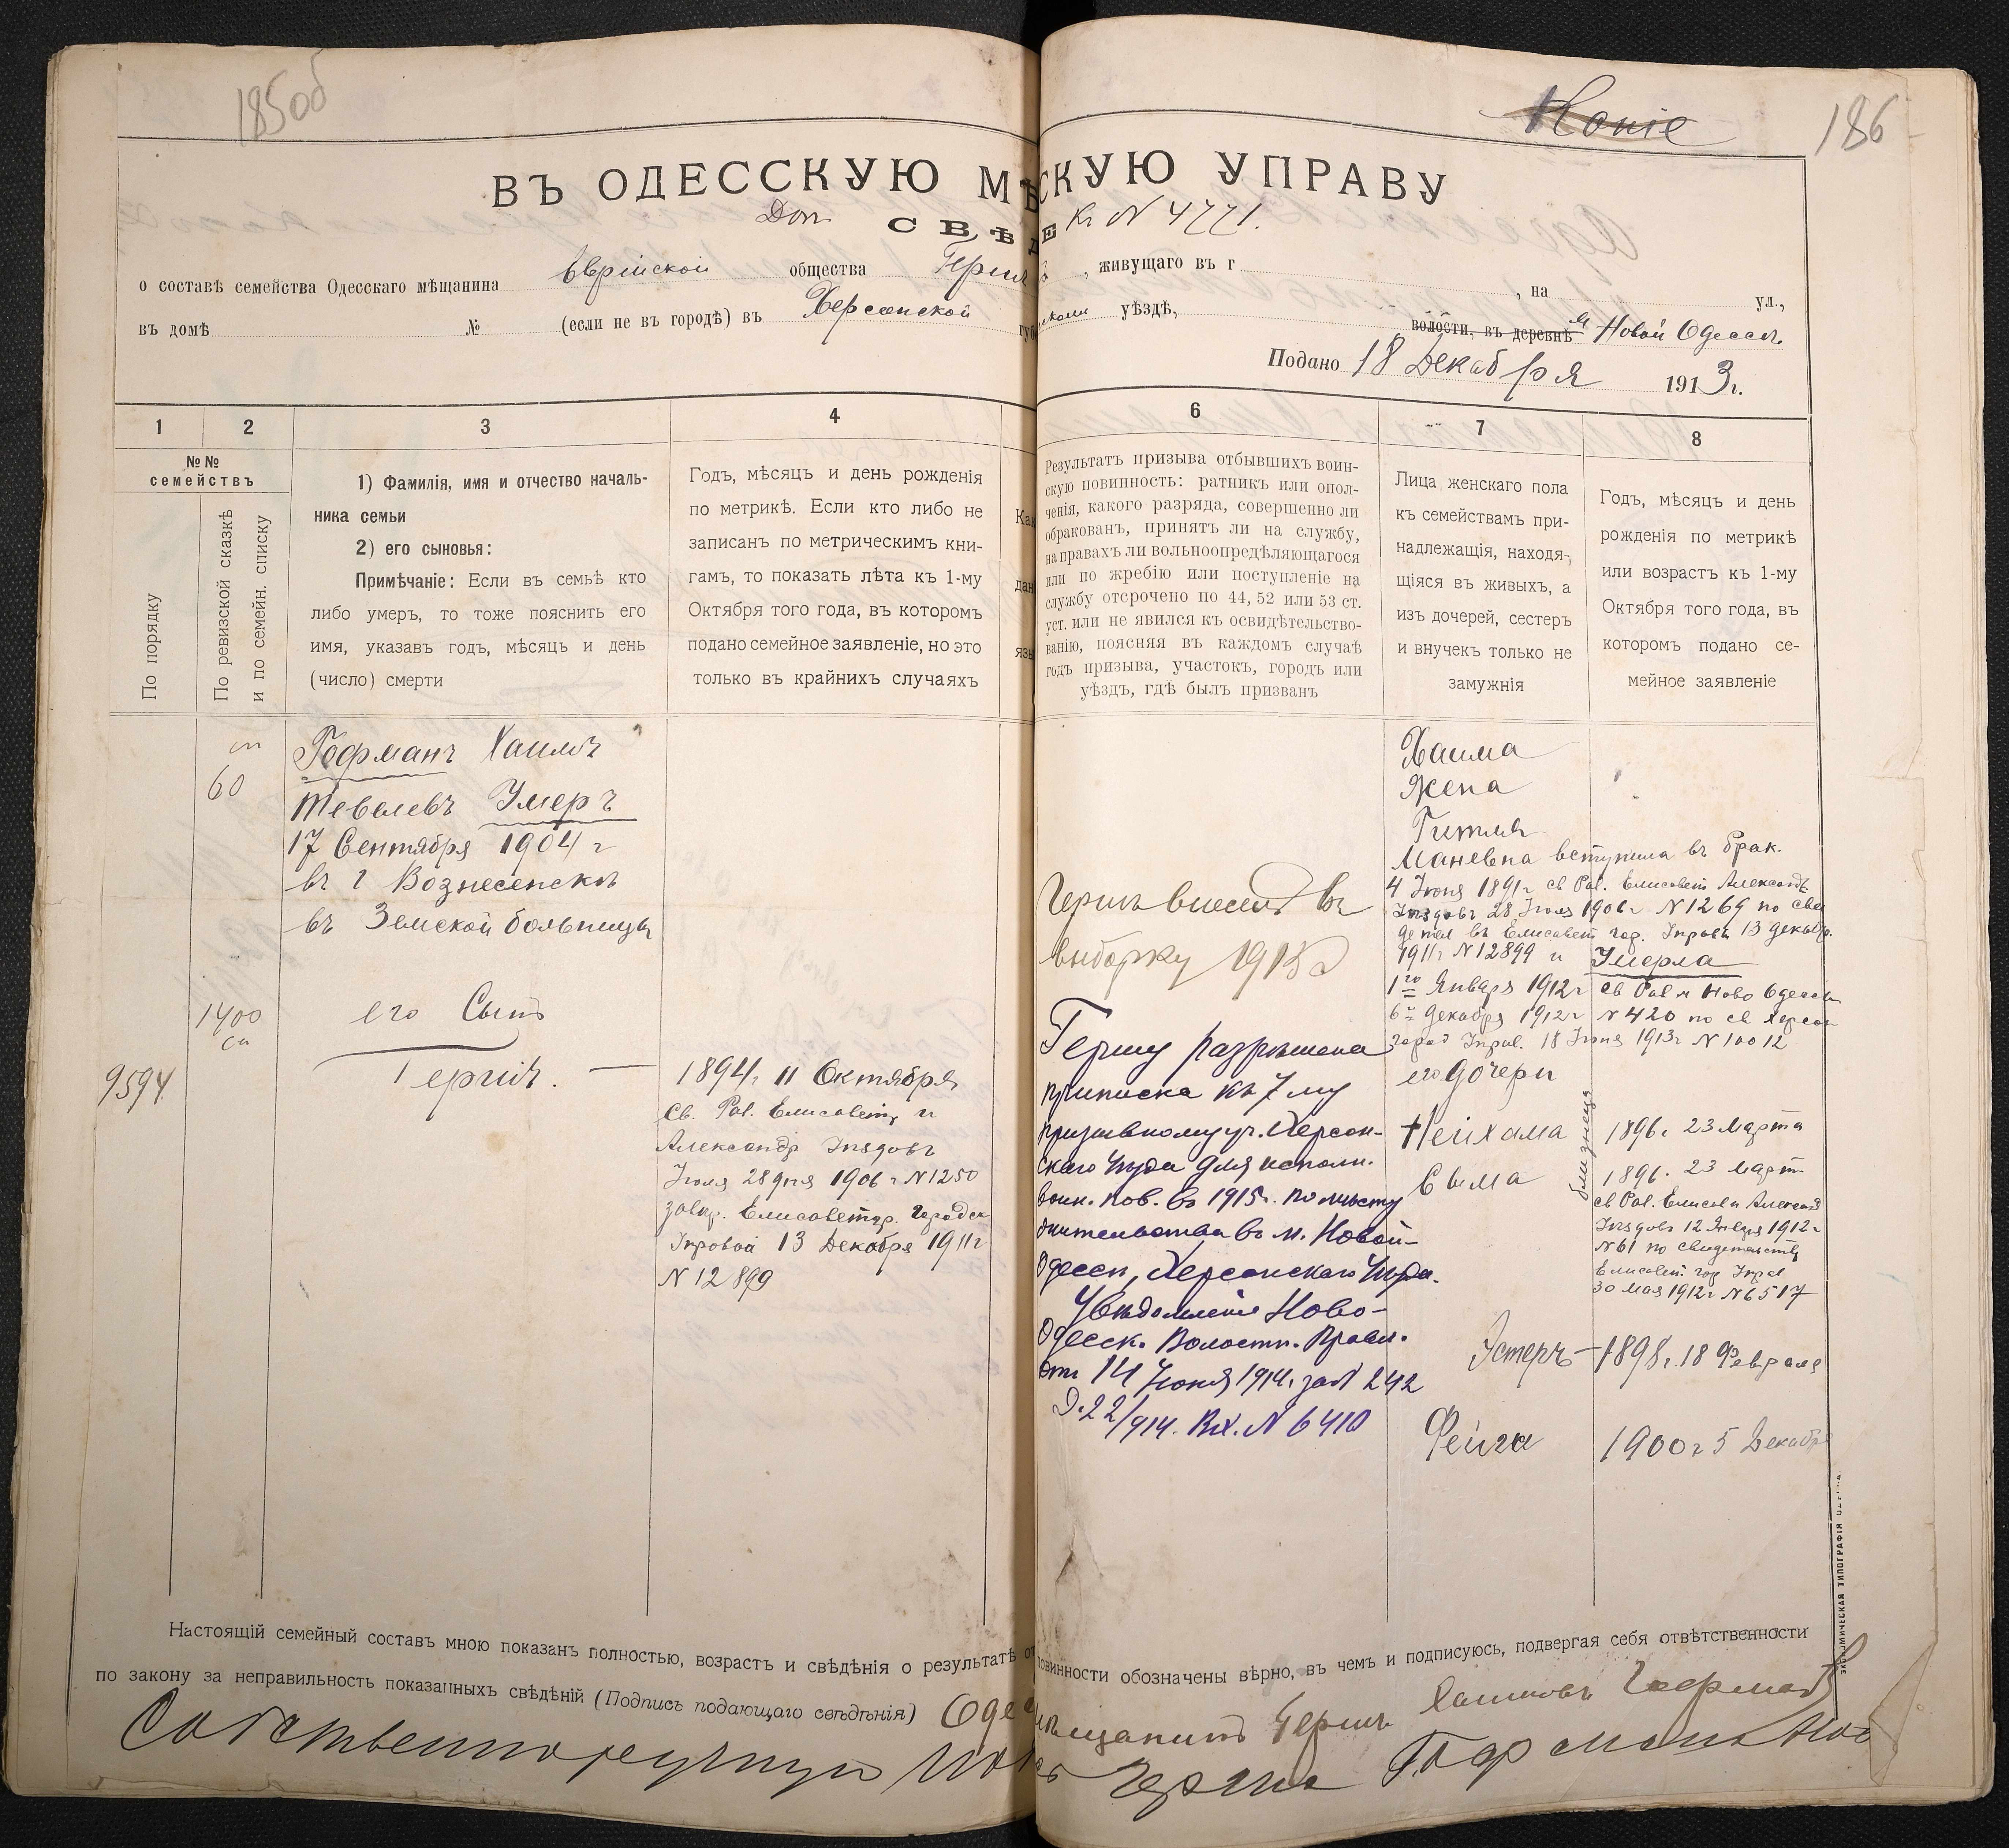 185об
ВЪ ОДЕССКУЮ МѢ
Доп.
СВѢД
о составѣ семейства Одесскаго мѣщанина Еврейской общества Герша
въ домѣ № (если не въ городѣ) въ Херсонской губ
1 2 3 4
№№ семействъ
По порядку
По ревизской сказкѣ и по семейн. списку
1) Фамилія, имя и отчество началь-
ника семьи
2) его сыновья:
Примѣчаніе: Если въ семьѣ кто
либо умеръ, то тоже пояснить его
имя, указавъ годъ, мѣсяцъ и день
(число) смерти
Годъ, мѣсяцъ и день рожденія
по метрикѣ. Если кто либо не
записанъ по метрическимъ кни-
гамъ, то показать лѣта къ 1-му
Октября того года, въ которомъ
подано семейное заявленіе, но это
только въ крайнихъ случаяхъ
Как
дан
язы
сп
60
Гофманъ Хаимъ
Тевелевъ Умеръ
17 Сентября 1904 г
въ г Вознесенскѣ
въ Земской больницѣ
1400
сп
его Сынъ
9594
Гершъ. —
1894 г 11 Октября
Св. Рав. Елисавет, и
Александр Уѣздовъ
Іюля 28 дня 1906 г N 1250
завѣр. Елисаветгр. Городск
Управой 13 Декабря 1911 г
N 12899
Настоящій семейный составъ мною показанъ полностью, возрастъ и свѣдѣнія о результатѣ от
по закону за неправильность показанныхъ свѣдѣній (Подпись подающаго свѣдѣнія) Одес
Собственноручную
Копіе
186
СКУЮ УПРАВУ
Е К N 4771.
, живущаго въ г , на ул.,
уѣздѣ, волости, въ деревнѣ м Новой Одессѣ.
Подано 18 Декабря 1913 г.
6 7 8
Результатъ призыва отбывшихъ воин-
скую повинность: ратникъ или опол-
ченія, какого разряда, совершенно ли
обракованъ, принятъ ли на службу,
на правахъ ли вольноопредѣляющагося
или по жребію или поступленіе на
службу отсрочено по 44, 52 или 53 ст.
уст. или не явился къ освидѣтельство-
ванію, поясняя въ каждомъ случаѣ
годъ призыва, участокъ, городъ или
уѣздъ, гдѣ былъ призванъ
Лица женскаго пола
къ семействамъ при-
надлежащія, находя-
щіяся въ живыхъ, а
изъ дочерей, сестеръ
и внучекъ только не
замужнія
Годъ, мѣсяцъ и день
рожденія по метрикѣ
или возрастъ къ 1-му
Октября того года, въ
которомъ подано се-
мейное заявленіе
Гершъ внесенъ въ
выборку 1915 г
Гершу разрѣшена
приписка къ 7 му
призывному уч. Херсон-
скаго Уѣзда для исполн.
воин. пов. въ 1915 г. по мѣсту
жительства въ м. Новой-
Одессѣ, Херсонскаго Уѣзда.
Увѣдомленіе Ново-
Одесск. Волостн. Правл.
отъ 14 Іюня 1914 г за N 242
Д. 22/914. Вх. N 6410
Хаима
Жена
Гитля
Маневна вступила въ брак.
4 Іюня 1891 г св Рав. Елисавет Александр
Уѣздовъ 28 Іюля 1906 г N 1269 по сви
детел въ Елисавет гор. Управѣ 13 декабр.
1911 г N 12899 и Умерла
1го Января 1912 г св Рав м Ново Одессы
6 Декабря 1912 г N 420 по св Херсон
город Управ. 18 Іюня 1913 г N 10012
его дочери
близнецы
Нейхама 1896 г 23 Марта
Сыма 1896. 23 Март
св Рав. Елисав и Александ
Уѣздовъ 12 Января 1912 г
N 61 по свидетельству
Елисавет гор Управ
30 Мая 1912 г N 6517
Эстеръ — 1898 г. 18 Февраля
Фейга 1900 г 5 Декабр
ЭКОНОМИЧЕСКАЯ ТИПОГРАФІЯ
повинности обозначены вѣрно, въ чемъ и подписуюсь, подвергая себя отвѣтственности
мѣщанинъ Гершъ Хаимовъ Гофманъ
Герша Гофмана